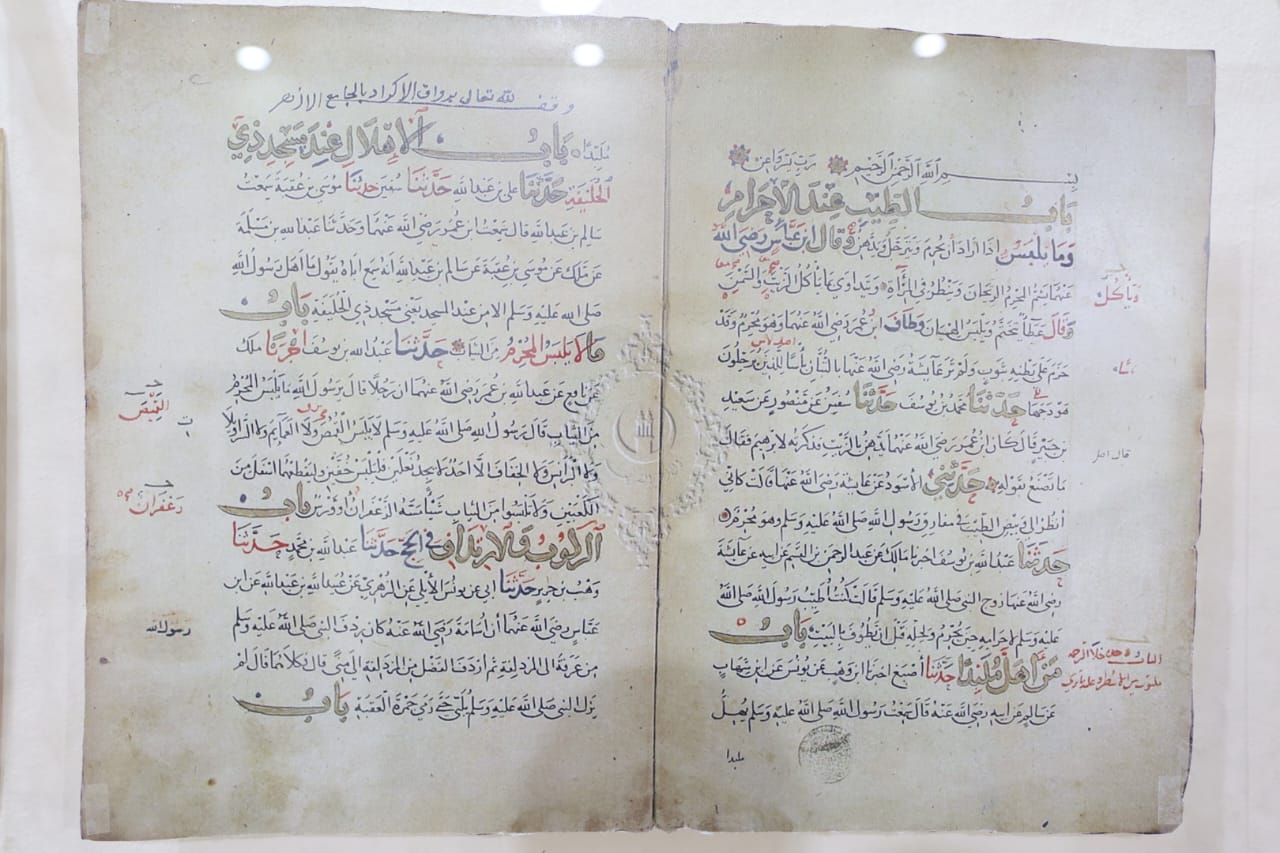 بسم الله الرحمن الرحيم رب يسر واعن
باب الطيب عند الاحرام
وما يلبس اذا اراد ان يحرم ويترجل ويدهن وقال ابن عباس رضي الله
عنهما يشم المحرم الريحان وينظر في المرآة ويتداوى بما ياكل الزيت والسمن
وقال عطاء يتختم ويلبس الهميان وطاف ابن عمر رضي الله عنهما وهو محرم وقد
حزم على بطنه بثوب ولم تر عايشة رضي الله عنها بالتبان باسا للذين يرحلون
هودجها حدثنا محمد بن يوسف حدثنا سفين عن منصور عن سعيد
بن جبير قال كان ابن عمر رضي الله عنهما يدهن بالزيت فذكرته لابرهيم فقال
ما تصنع بقوله حدثني الأسود عن عايشة رضي الله عنها قالت كاني
انظر الى وبيص الطيب في مفارق رسول الله صلى الله عليه وسلم وهو محرم
حدثنا عبد الله بن يوسف اخبرنا مالك عن عبد الرحمن بن القسم عن ابيه عن عايشة
رضي الله عنها زوج النبي صلى الله عليه وسلم قالت كنت اطيب رسول الله صلى الله
عليه وسلم لاحرامه حين يحرم ولحله قبل ان يطوف بالبيت باب
من اهل ملبدا حدثنا أصبغ اخبرنا ابن وهب عن يونس عن ابن شهاب
عن سالم عن ابيه رضي الله عنه قال سمعت رسول الله صلى الله عليه وسلم يهل
ملبدا
وياكل
قال اصل
وقف لله تعالى برواق الاكراد بالجامع الازهر
ملبدا باب الاهلال عند مسجد ذي
الحليفة حدثنا علي بن عبد الله حدثنا سفين حدثنا موسى بن عقبة سمعت
سالم بن عبد الله قال سمعت ابن عمر رضي الله عنهما وحدثنا عبد الله بن مسلمة
عن ملك عن موسى بن عقبة عن سالم بن عبد الله أنه سمع اباه يقول ما اهل رسول الله
صلى الله عليه وسلم الا من عند المسجد يعني مسجد ذي الحليفة باب
ما لا يلبس المحرم من الثياب حدثنا عبد الله بن يوسف اخبرنا ملك
عن نافع عن عبد الله بن عمر رضي الله عنهما ان رجلا قال يرسول الله ما يلبس المحرم
من الثياب قال رسول الله صلى الله عليه وسلم لا يلبس القمص ولا العمايم ولا السراويلات
ولا البرانس ولا الخفاف الا احد لا يجد نعلين فليلبس خفين وليقطعهما اسفل من
الكعبين ولا تلبسوا من الثياب شيئا مسه الزعفران او ورس باب
الركوب والارتداف في الحج حدثنا عبد الله بن محمد حدثنا
وهب بن جرير حدثنا ابي عن يونس الأيلي عن الزهري عن عبيد الله بن عبد الله عن ابن
عباس رضي الله عنهما أن اسامة رضي الله عنه كان ردف النبي صلى الله عليه وسلم
من عرفة الى المزدلفة ثم اردف الفضل من المزدلفة الى منى قال فكلاهما قال لم
يزل النبي صلى الله عليه وسلم يلبي حتى رمى جمرة العقبة باب
القميص
زعفران
رسول الله